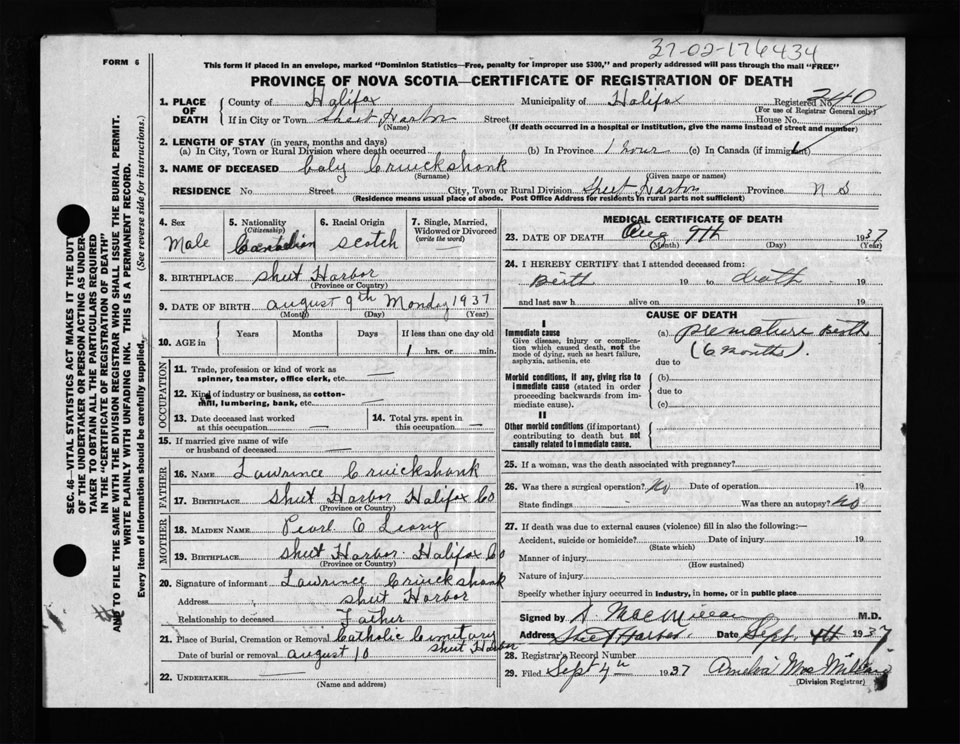 37-02-176434
FORM 6
This form if placed in an envelope, marked "Dominion Statistics—Free, penalty for improper use $300," and properly addressed will pass through the mail "FREE"
PROVINCE OF NOVA SCOTIA—CERTIFICATE OF REGISTRATION OF DEATH
1. PLACE OF DEATH
County of Halifax Municipality of Halifax Registered No. 240
(For use of Registrar General only)
If in City or Town Sheet Harbor Street House No.
(Name) (If death occurred in a hospital or institution, give the name instead of street and number)
2. LENGTH OF STAY (in years, months and days)
(a) In City, Town or Rural Division where death occurred (b) In Province 1 hour (c) In Canada (if immigrant)
3. NAME OF DECEASED Baby Cruickshank
(Surname) (Given name or names)
RESIDENCE No Street City, Town or Rural Division Sheet Harbor Province N S
(Residence means usual place of abode. Post Office Address for residents in rural parts not sufficient)
4. Sex
Male
5. Nationality
(Citizenship)
Canadian
6. Racial Origin
Scotch
7. Single, Married, Widowed or Divorced
(write the word)
8. BIRTHPLACE Sheet Harbor
(Province or Country)
9. DATE OF BIRTH August 9th Monday 1937
(Month) (Day) (Year)
10. AGE in Years Months Days If less than one day old
1 hrs. or min.
OCCUPATION
11. Trade, profession or kind of work as spinner, teamster, office clerk, etc. —
12. Kind of industry or business, as cotton-mill, lumbering, bank, etc. —
13. Date deceased last worked at this occupation —
14. Total yrs. spent in this occupation —
15. If married give name of wife or husband of deceased —
FATHER
16. NAME Lawrince Cruickshank
17. BIRTHPLACE Sheet Harbor Halifax Co
(Province or Country)
MOTHER
18. MAIDEN NAME Pearl O Leary
19. BIRTHPLACE Sheet Harbor. Halifax Co
(Province or Country)
20. Signature of informant Lawrince Cruickshank
Address Sheet Harbor
Relationship to deceased Father
21. Place of Burial, Cremation or Removal Catholic Cimitary
Sheet Harbor
Date of burial or removal August 10
22. UNDERTAKER —
(Name and address)
MEDICAL CERTIFICATE OF DEATH
23. DATE OF DEATH Aug 9th 1937
(Month) (Day) (Year)
24. I HEREBY CERTIFY that I attended deceased from:
Birth 19 to death 19
and last saw h alive on 19
CAUSE OF DEATH
I
Immediate cause
Give disease, injury or complication which caused death, not the mode of dying, such as heart failure, asphyxia, asthenia, etc
(a) premature birth
(6 months).
due to
Morbid conditions, if any, giving rise to immediate cause (stated in order proceeding backwards from immediate cause).
(b)
due to
(c)
II
Other morbid conditions (if important) contributing to death but not causally related to immediate cause.
25. If a woman, was the death associated with pregnancy?
26. Was there a surgical operation? No Date of operation 19
State findings Was there an autopsy? No
27. If death was due to external causes (violence) fill in also the following:—
Accident, suicide or homicide? Date of injury 19
(State which)
Manner of injury
(How sustained)
Nature of injury
Specify whether injury occurred in industry, in home, or in public place
Signed by MacMillan M.D.
Address Sheet Harbor. Date Sept. 4th 1937
28. Registrar's Record Number
29. Filed Sept 4th 1937 Amelia MacMillan
(Division Registrar)
SEC. 46—VITAL STATISTICS ACT MAKES IT THE DUTY
OF THE UNDERTAKER OR PERSON ACTING AS UNDERTAKER TO OBTAIN ALL THE PARTICULARS REQUIRED
IN THE "CERTIFICATE OF REGISTRATION OF DEATH"
AND TO FILE THE SAME WITH THE DIVISION REGISTRAR WHO SHALL ISSUE THE BURIAL PERMIT.
WRITE PLAINLY WITH UNFADING INK. THIS IS A PERMANENT RECORD.
Every item of information should be carefully supplied. (See reverse side for instructions.)